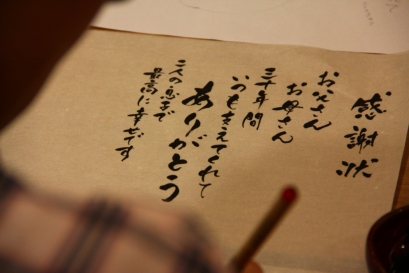 感謝状
お父さん
お母さん
三十年間
いつも支えてくれて
ありがとう
二人の息子で
最高に幸せです